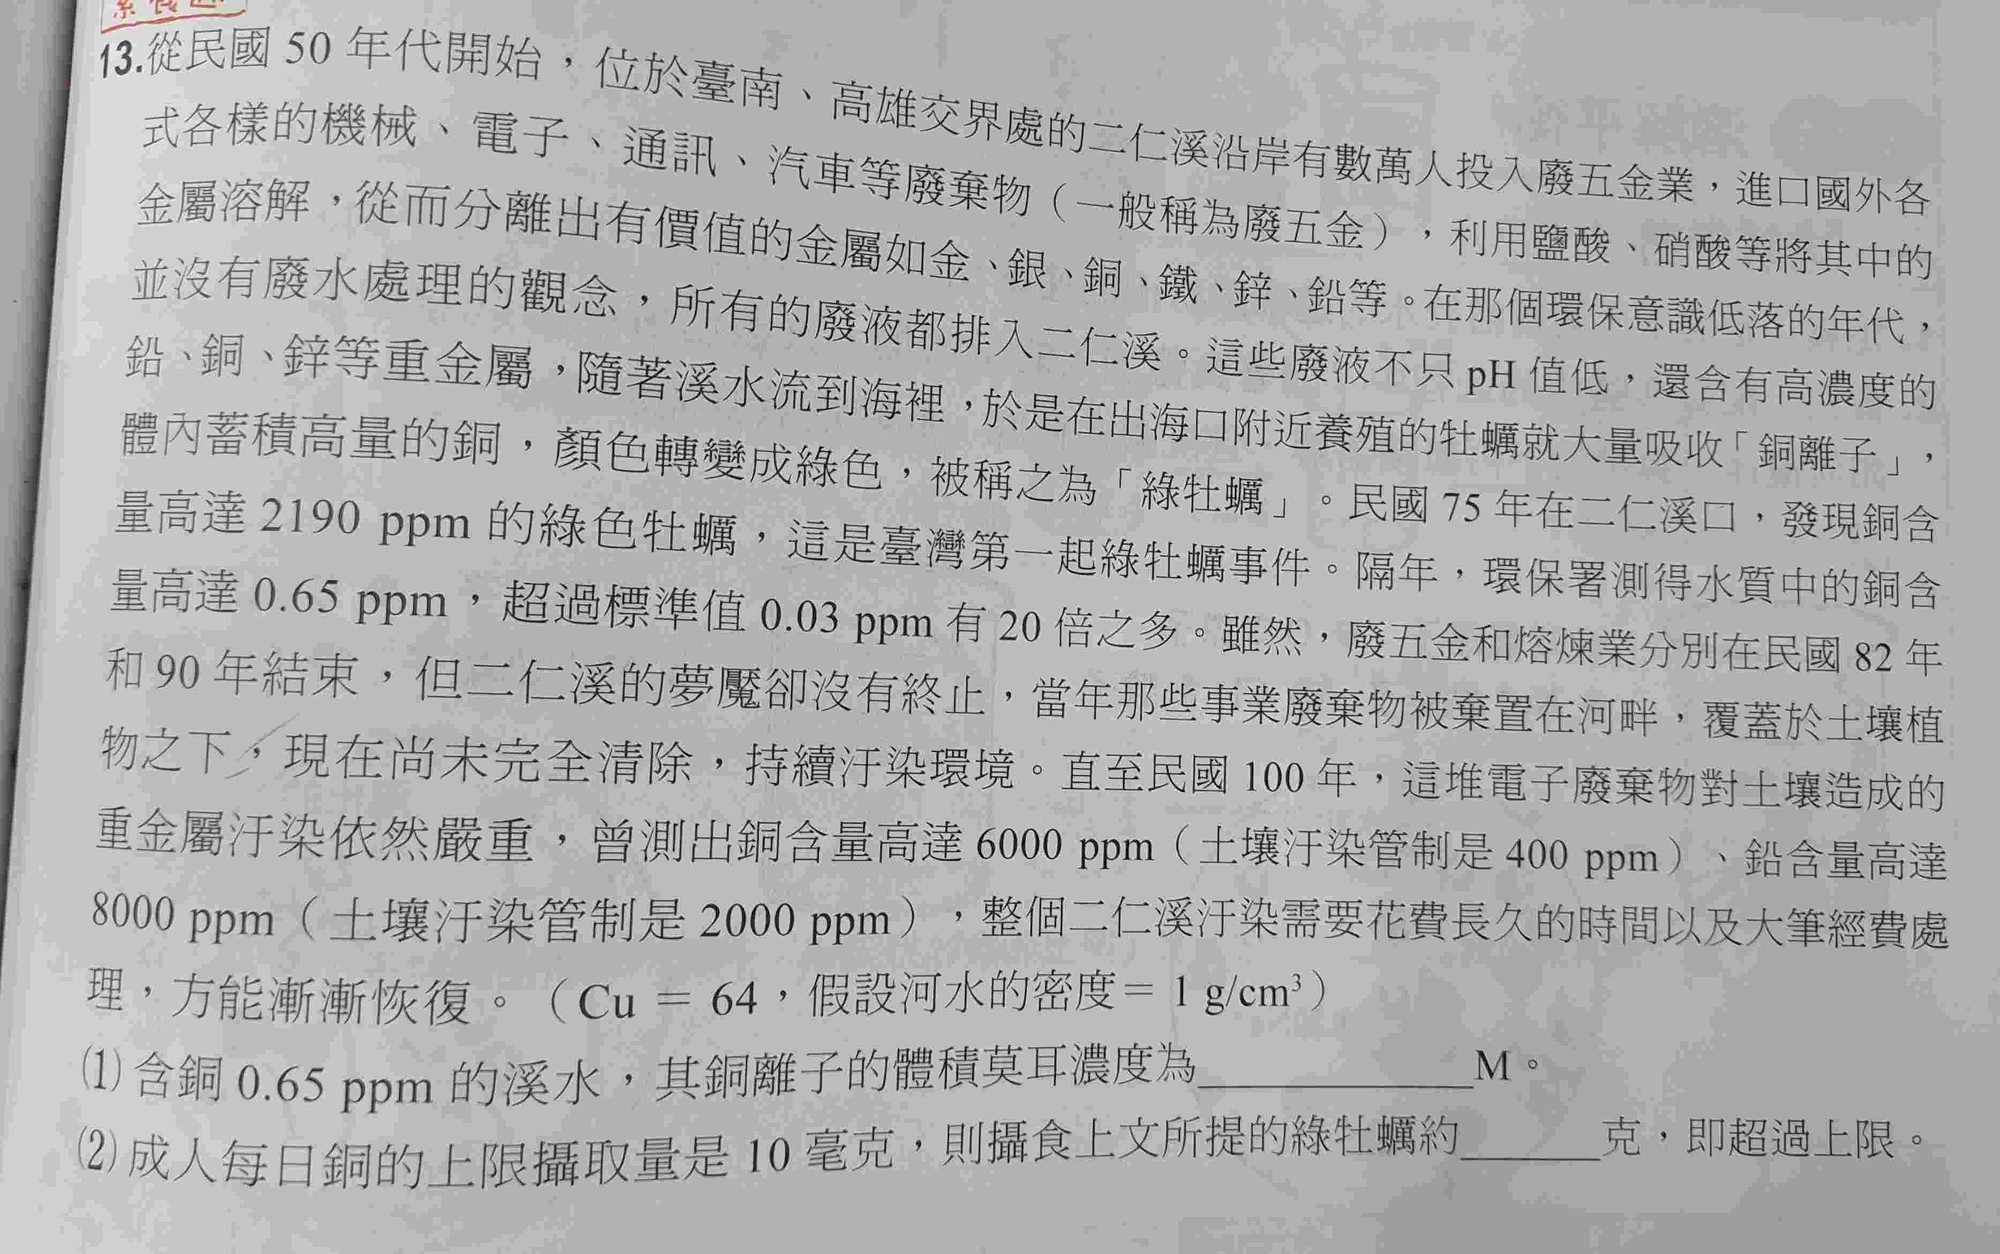 13.從民國 50 年代開始，位於臺南、高雄交界處的二仁溪沿岸有數萬人投入廢五金業，進口國外各
式各樣的機械、電子、通訊、汽車等廢棄物（一般稱為廢五金），利用鹽酸、硝酸等將其中的
金屬溶解，從而分離出有價值的金屬如金、銀、銅、鐵、鋅、鉛等。在那個環保意識低落的年代，
並沒有廢水處理的觀念，所有的廢液都排入二仁溪。這些廢液不只 pH 值低，還含有高濃度的
鉛、銅、鋅等重金屬，隨著溪水流到海裡，於是在出海口附近養殖的牡蠣就大量吸收「銅離子」，
體內蓄積高量的銅，顏色轉變成綠色，被稱之為「綠牡蠣」。民國 75 年在二仁溪口，發現銅含
量高達 2190 ppm 的綠色牡蠣，這是臺灣第一起綠牡蠣事件。隔年，環保署測得水質中的銅含
量高達 0.65 ppm，超過標準值 0.03 ppm 有 20 倍之多。雖然，廢五金和熔煉業分別在民國 82 年
和 90 年結束，但二仁溪的夢魘卻沒有終止，當年那些事業廢棄物被棄置在河畔，覆蓋於土壤植
物之下，現在尚未完全清除，持續汙染環境。直至民國 100 年，這堆電子廢棄物對土壤造成的
重金屬汙染依然嚴重，曾測出銅含量高達 6000 ppm（土壤汙染管制是 400 ppm）、鉛含量高達
8000 ppm（土壤汙染管制是 2000 ppm），整個二仁溪汙染需要花費長久的時間以及大筆經費處
理，方能漸漸恢復。（Cu = 64，假設河水的密度= 1 g/cm³）
⑴ 含銅 0.65 ppm 的溪水，其銅離子的體積莫耳濃度為__________M。
⑵ 成人每日銅的上限攝取量是 10 毫克，則攝食上文所提的綠牡蠣約_____克，即超過上限。